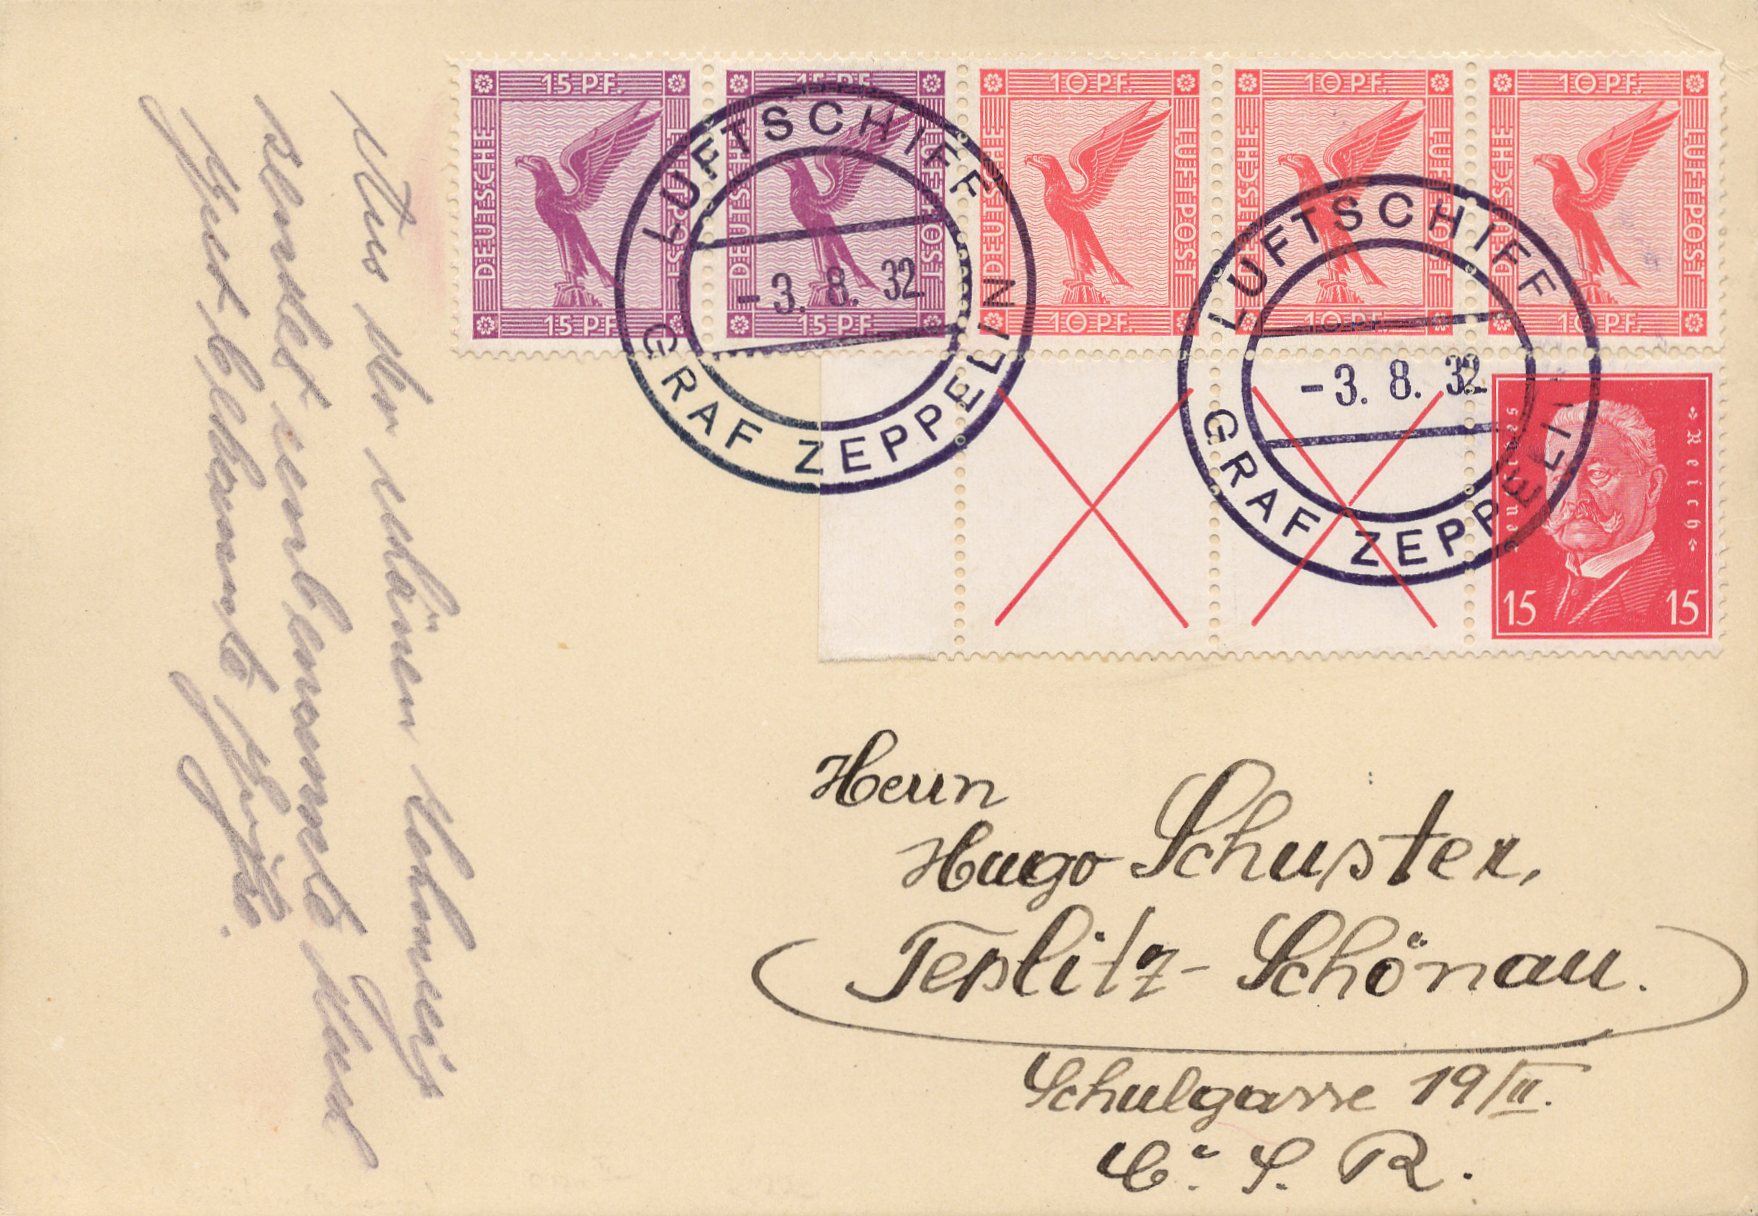 15 PF. DEUTSCHE LUFTPOST 15 PF.
15 PF. DEUTSCHE LUFTPOST 15 PF.
10 PF. DEUTSCHE LUFTPOST 10 PF.
10 PF. DEUTSCHE LUFTPOST 10 PF.
10 PF. DEUTSCHE LUFTPOST 10 PF.
LUFTSCHIFF
-3. 8. 32
GRAF ZEPPELIN
LUFTSCHIFF
-3. 8. 32
GRAF ZEPPELIN
Reich
15 15
Aus der schönen
sendet
Herrn
Hugo Schuster,
Teplitz-Schönau.
Schulgasse 19/II.
Č. S. R.